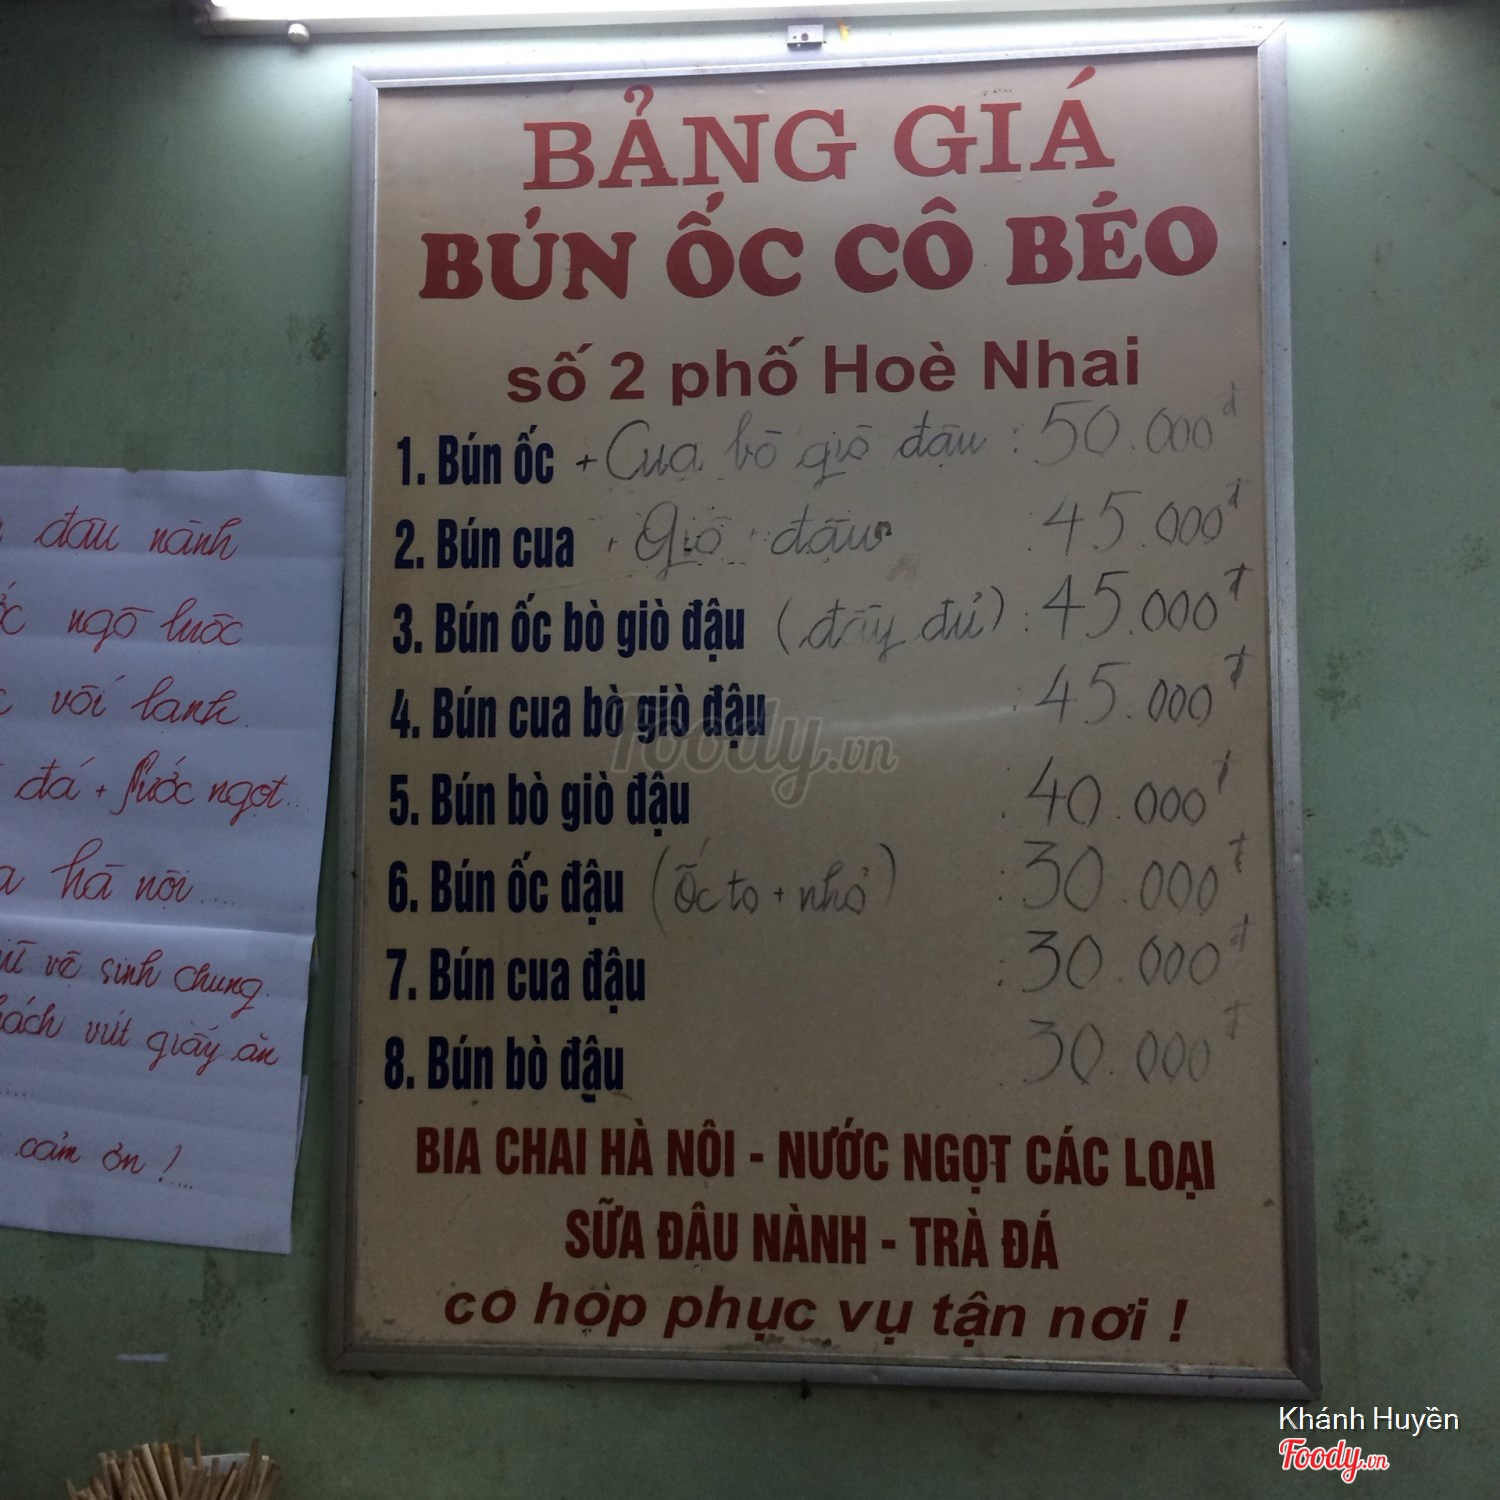 BẢNG GIÁ
BÚN ỐC CÔ BÉO
số 2 phố Hoè Nhai
1. Bún ốc + Cua bò giò đậu : 50.000đ
2. Bún cua + Giò + đậu : 45.000đ
3. Bún ốc bò giò đậu (đầy đủ) : 45.000đ
4. Bún cua bò giò đậu : 45.000đ
5. Bún bò giò đậu : 40.000đ
6. Bún ốc đậu (ốc to + nhỏ) : 30.000đ
7. Bún cua đậu : 30.000đ
8. Bún bò đậu : 30.000đ
BIA CHAI HÀ NÔI - NƯỚC NGỌT CÁC LOẠI
SỮA ĐẬU NÀNH - TRÀ ĐÁ
co hop phục vụ tận nơi !
đậu nành
ngô luộc
vối lạnh
đá + nước ngọt...
hà nội....
vệ sinh chung.
vứt giấy ăn
....
cảm ơn !....
Foody.vn
Khánh Huyền
Foody.vn